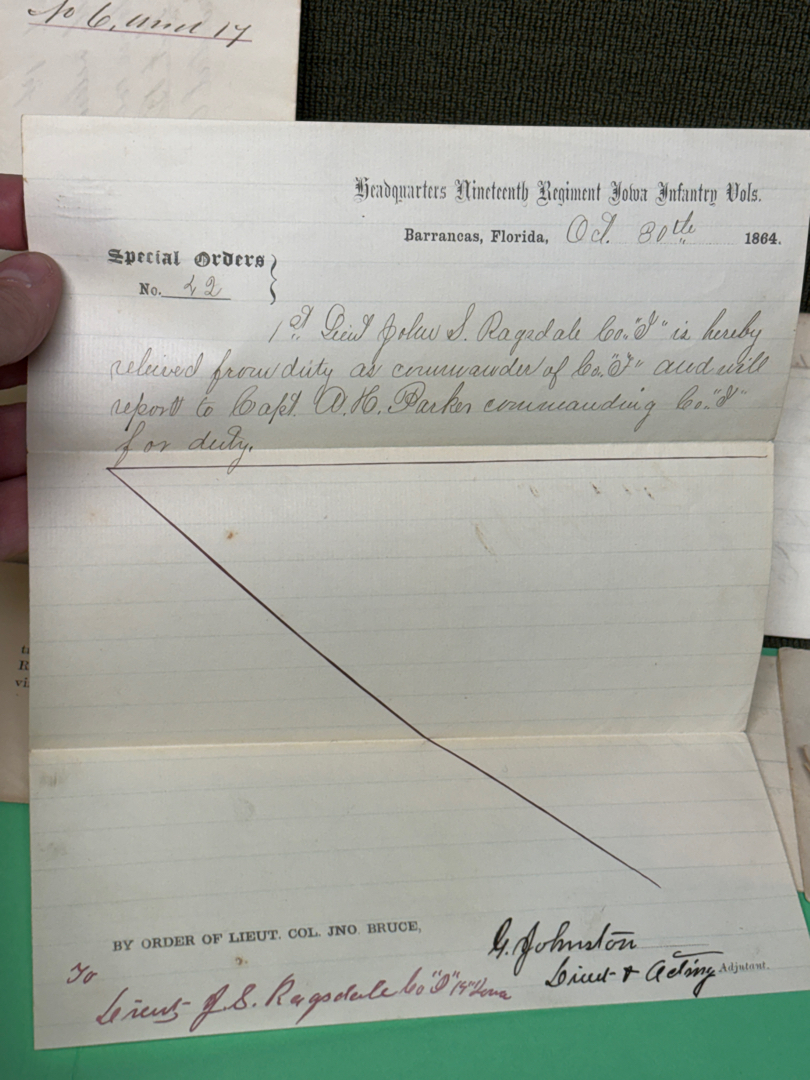 No 6. and 17
Headquarters Nineteenth Regiment Iowa Infantry Vols.
Barrancas, Florida, Oct. 30th 1864.
Special Orders }
No. 42
1st Lieut John S. Ragsdale Co. "I" is hereby
releived from duty as commander of Co. "F" and will
report to Capt. D. H. Parker commanding Co. "I"
for duty.
BY ORDER OF LIEUT. COL. JNO. BRUCE,
G. Johnston
Lieut & Acting Adjutant.
To
Lieut J. S. Ragsdale Co "I" 19" Iowa